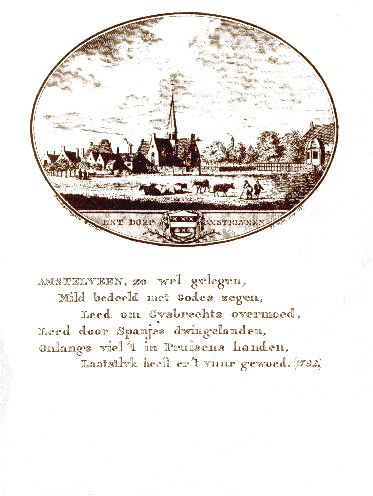 HET DORP AMSTELVEEN
AMSTELVEEN, zo wel gelegen,
Mild bedeeld met Godes zegen,
Leed om Gysbrechts overmoed,
Leed door Spanjes dwingelanden,
Onlangs viel 't in Pruisens handen,
Laatstlyk heeft er 't vuur gewoed. (1792)